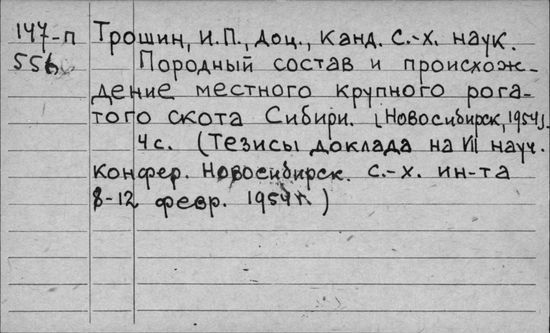 147-п Трошин, И.П., доц., канд. с.-х. наук.
556 Породный состав и происхож-
дение местного крупного рога-
того скота Сибири. [Новосибирск, 1954].
4 с. (Тезисы доклада на VII науч.
конфер. Новосибирск. с.-х. ин-та
8-12 февр. 1954 г.)